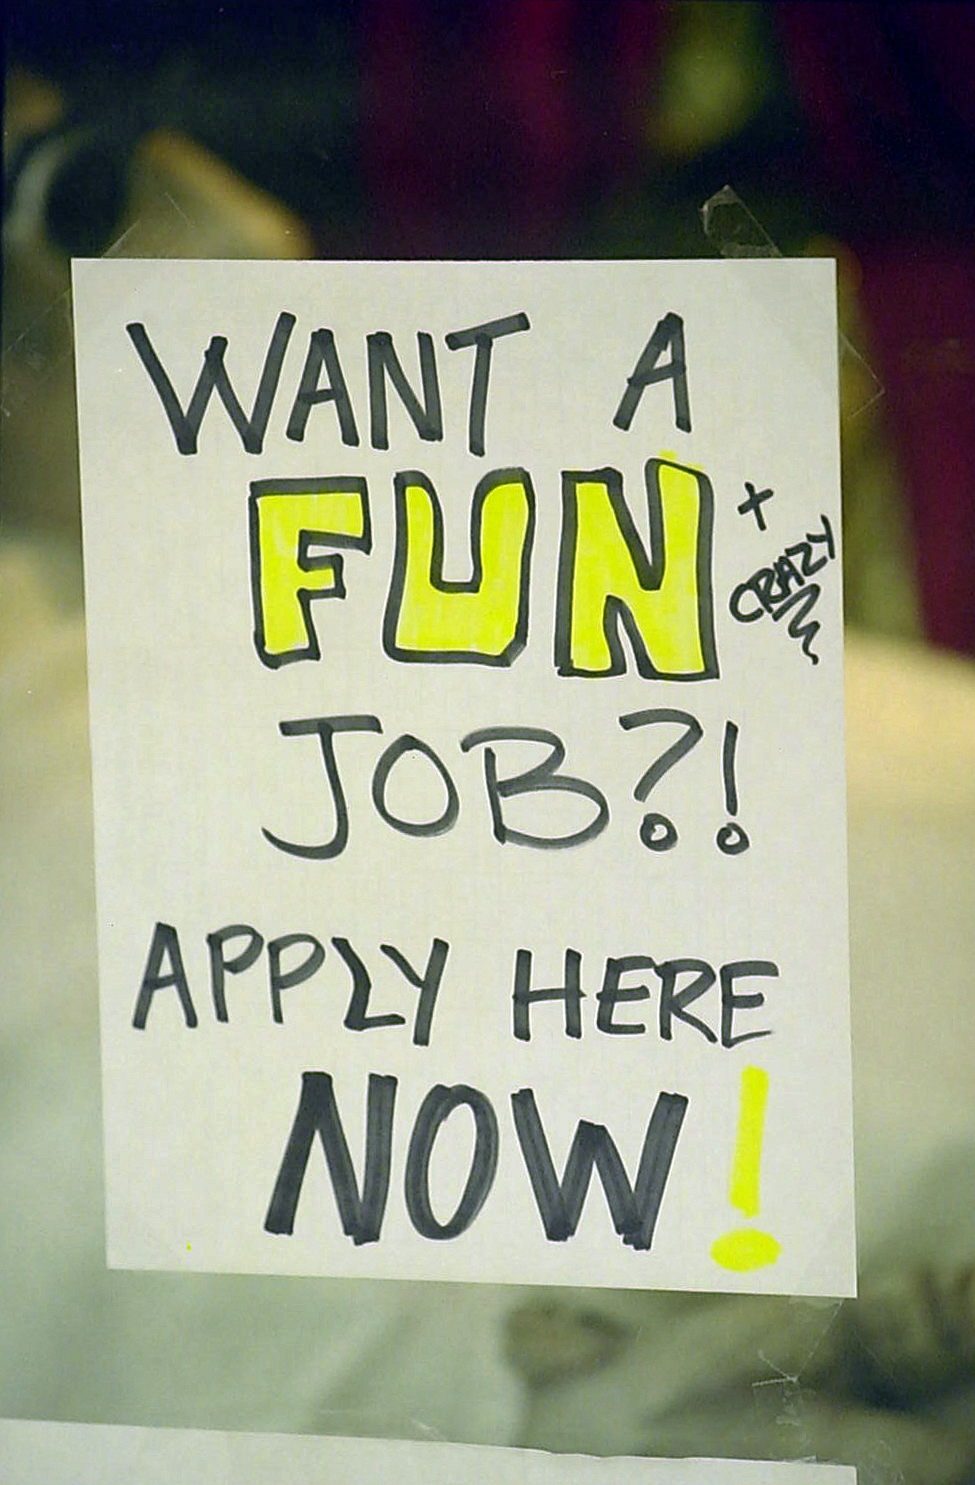 WANT A
FUN + CRAZY
JOB?!
APPLY HERE
NOW!